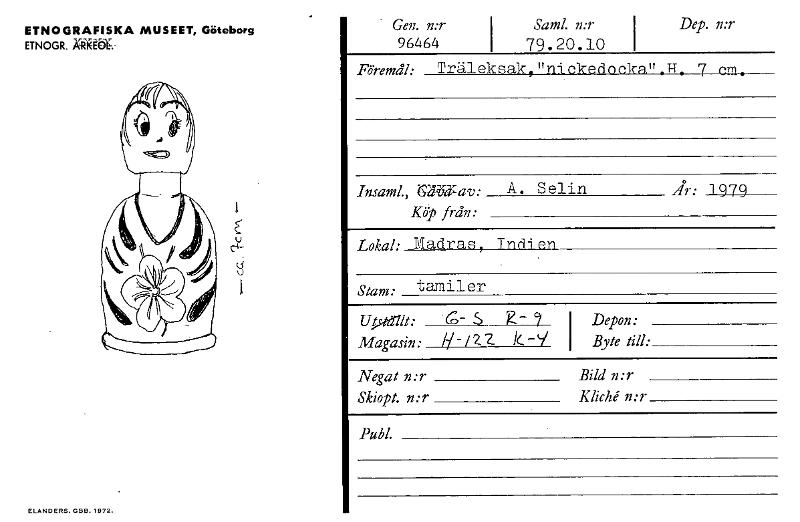 ETNOGRAFISKA MUSEET, Göteborg
ETNOGR. ARKEOL.
ca. 7cm
ELANDERS. GBB. 1972.
Gen. n:r Saml. n:r Dep. n:r
96464 79.20.10
Föremål: Träleksak,"nickedocka".H. 7 cm.
Insaml., Gåva av: A. Selin År: 1979
Köp från:
Lokal: Madras, Indien
Stam: tamiler
Utställt: G-S R-9 Depon:
Magasin: H-122 K-4 Byte till:
Negat n:r Bild n:r
Skiopt. n:r Kliché n:r
Publ.